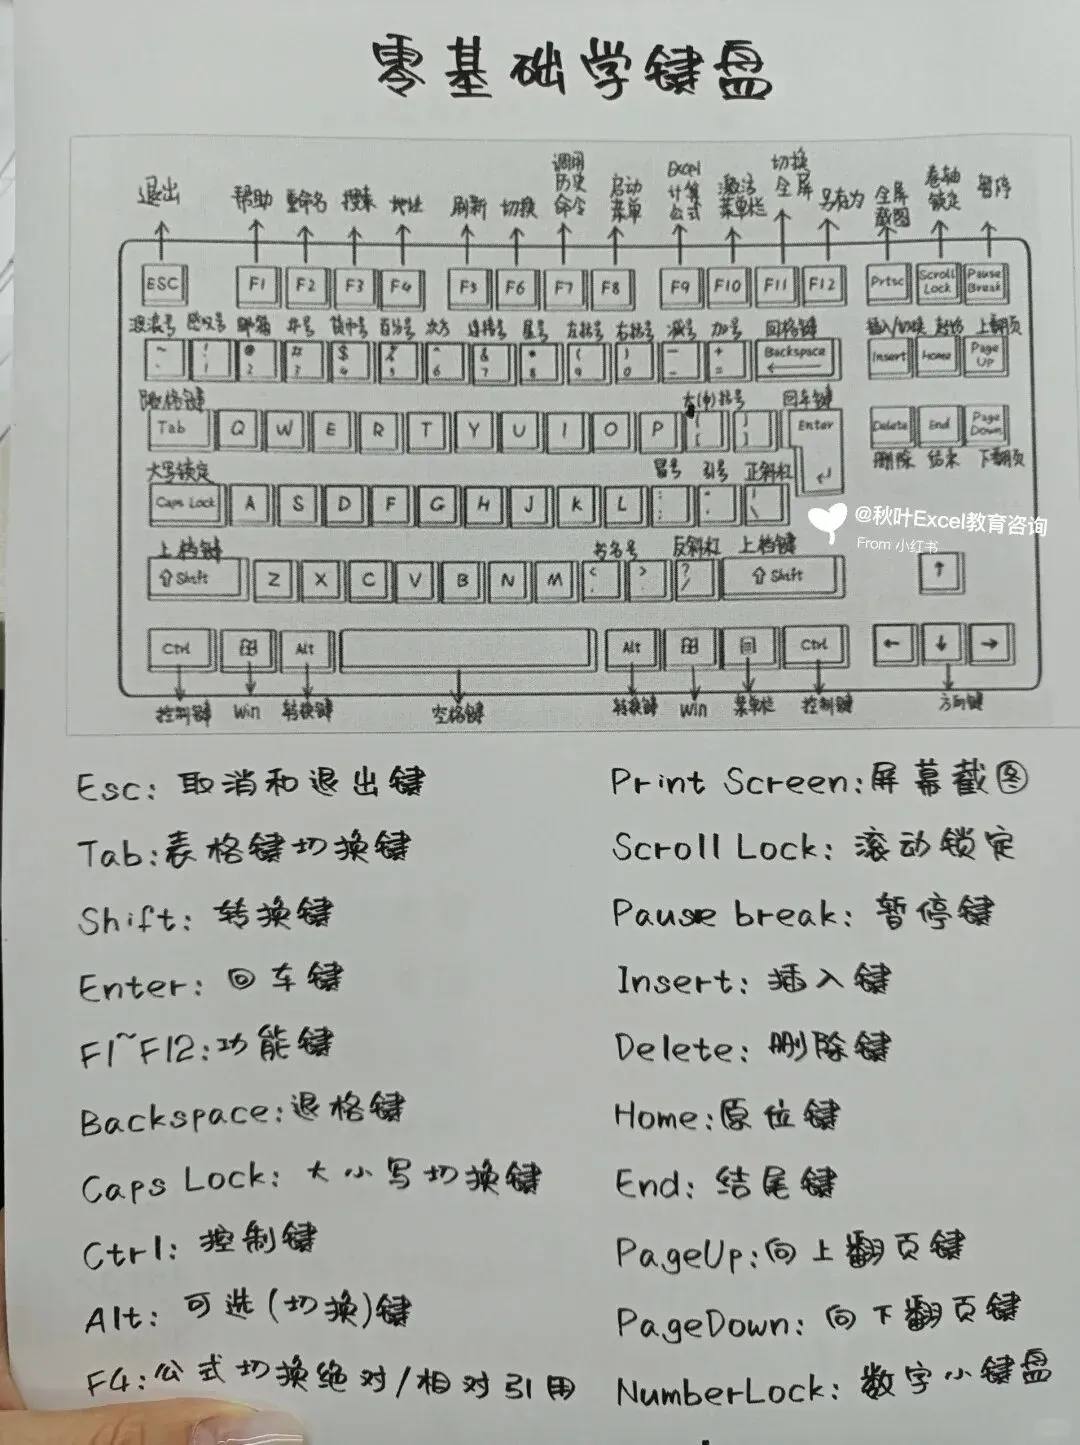 零基础学键盘
退出 帮助 重命名 搜索 地址 刷新 切换 调用历史命令 启动菜单 Excel计算公式 激活菜单栏 切换全屏 另存为 全屏截图 卷轴锁定 暂停
ESC F1 F2 F3 F4 F5 F6 F7 F8 F9 F10 F11 F12 Prtsc Scroll Lock Pause Break
波浪号 感叹号 邮箱 井号 货币号 百分号 次方 连接号 星号 左括号 右括号 减号 加号 回格键 插入/切换 起始 上翻页
~ ! @ # $ % ^ & * ( ) — + Backspace Insert Home Page Up
1 2 3 4 5 6 7 8 9 0 - =
制表格键 大(中)括号 回车键
Tab Q W E R T Y U I O P { } Enter Delete End Page Down
[ ]
大写锁定 冒号 引号 正斜杠 删除 结束 下翻页
Caps Lock A S D F G H J K L : " | \
@秋叶Excel教育咨询
From 小红书
上档键 书名号 反斜杠 上档键
⇧Shift Z X C V B N M < > ? / ⇧Shift ↑
Ctrl Alt Alt Ctrl ← ↓ →
控制键 Win 转换键 空格键 转换键 Win 菜单栏 控制键 方向键
Esc: 取消和退出键
Tab:表格键切换键
Shift: 转换键
Enter: 回车键
F1~F12:功能键
Backspace:退格键
Caps Lock: 大小写切换键
Ctrl: 控制键
Alt: 可选(切换)键
F4:公式切换绝对/相对引用
Print Screen:屏幕截图
Scroll Lock: 滚动锁定
Pause break: 暂停键
Insert: 插入键
Delete: 删除键
Home:原位键
End: 结尾键
PageUp:向上翻页键
PageDown: 向下翻页键
NumberLock: 数字小键盘